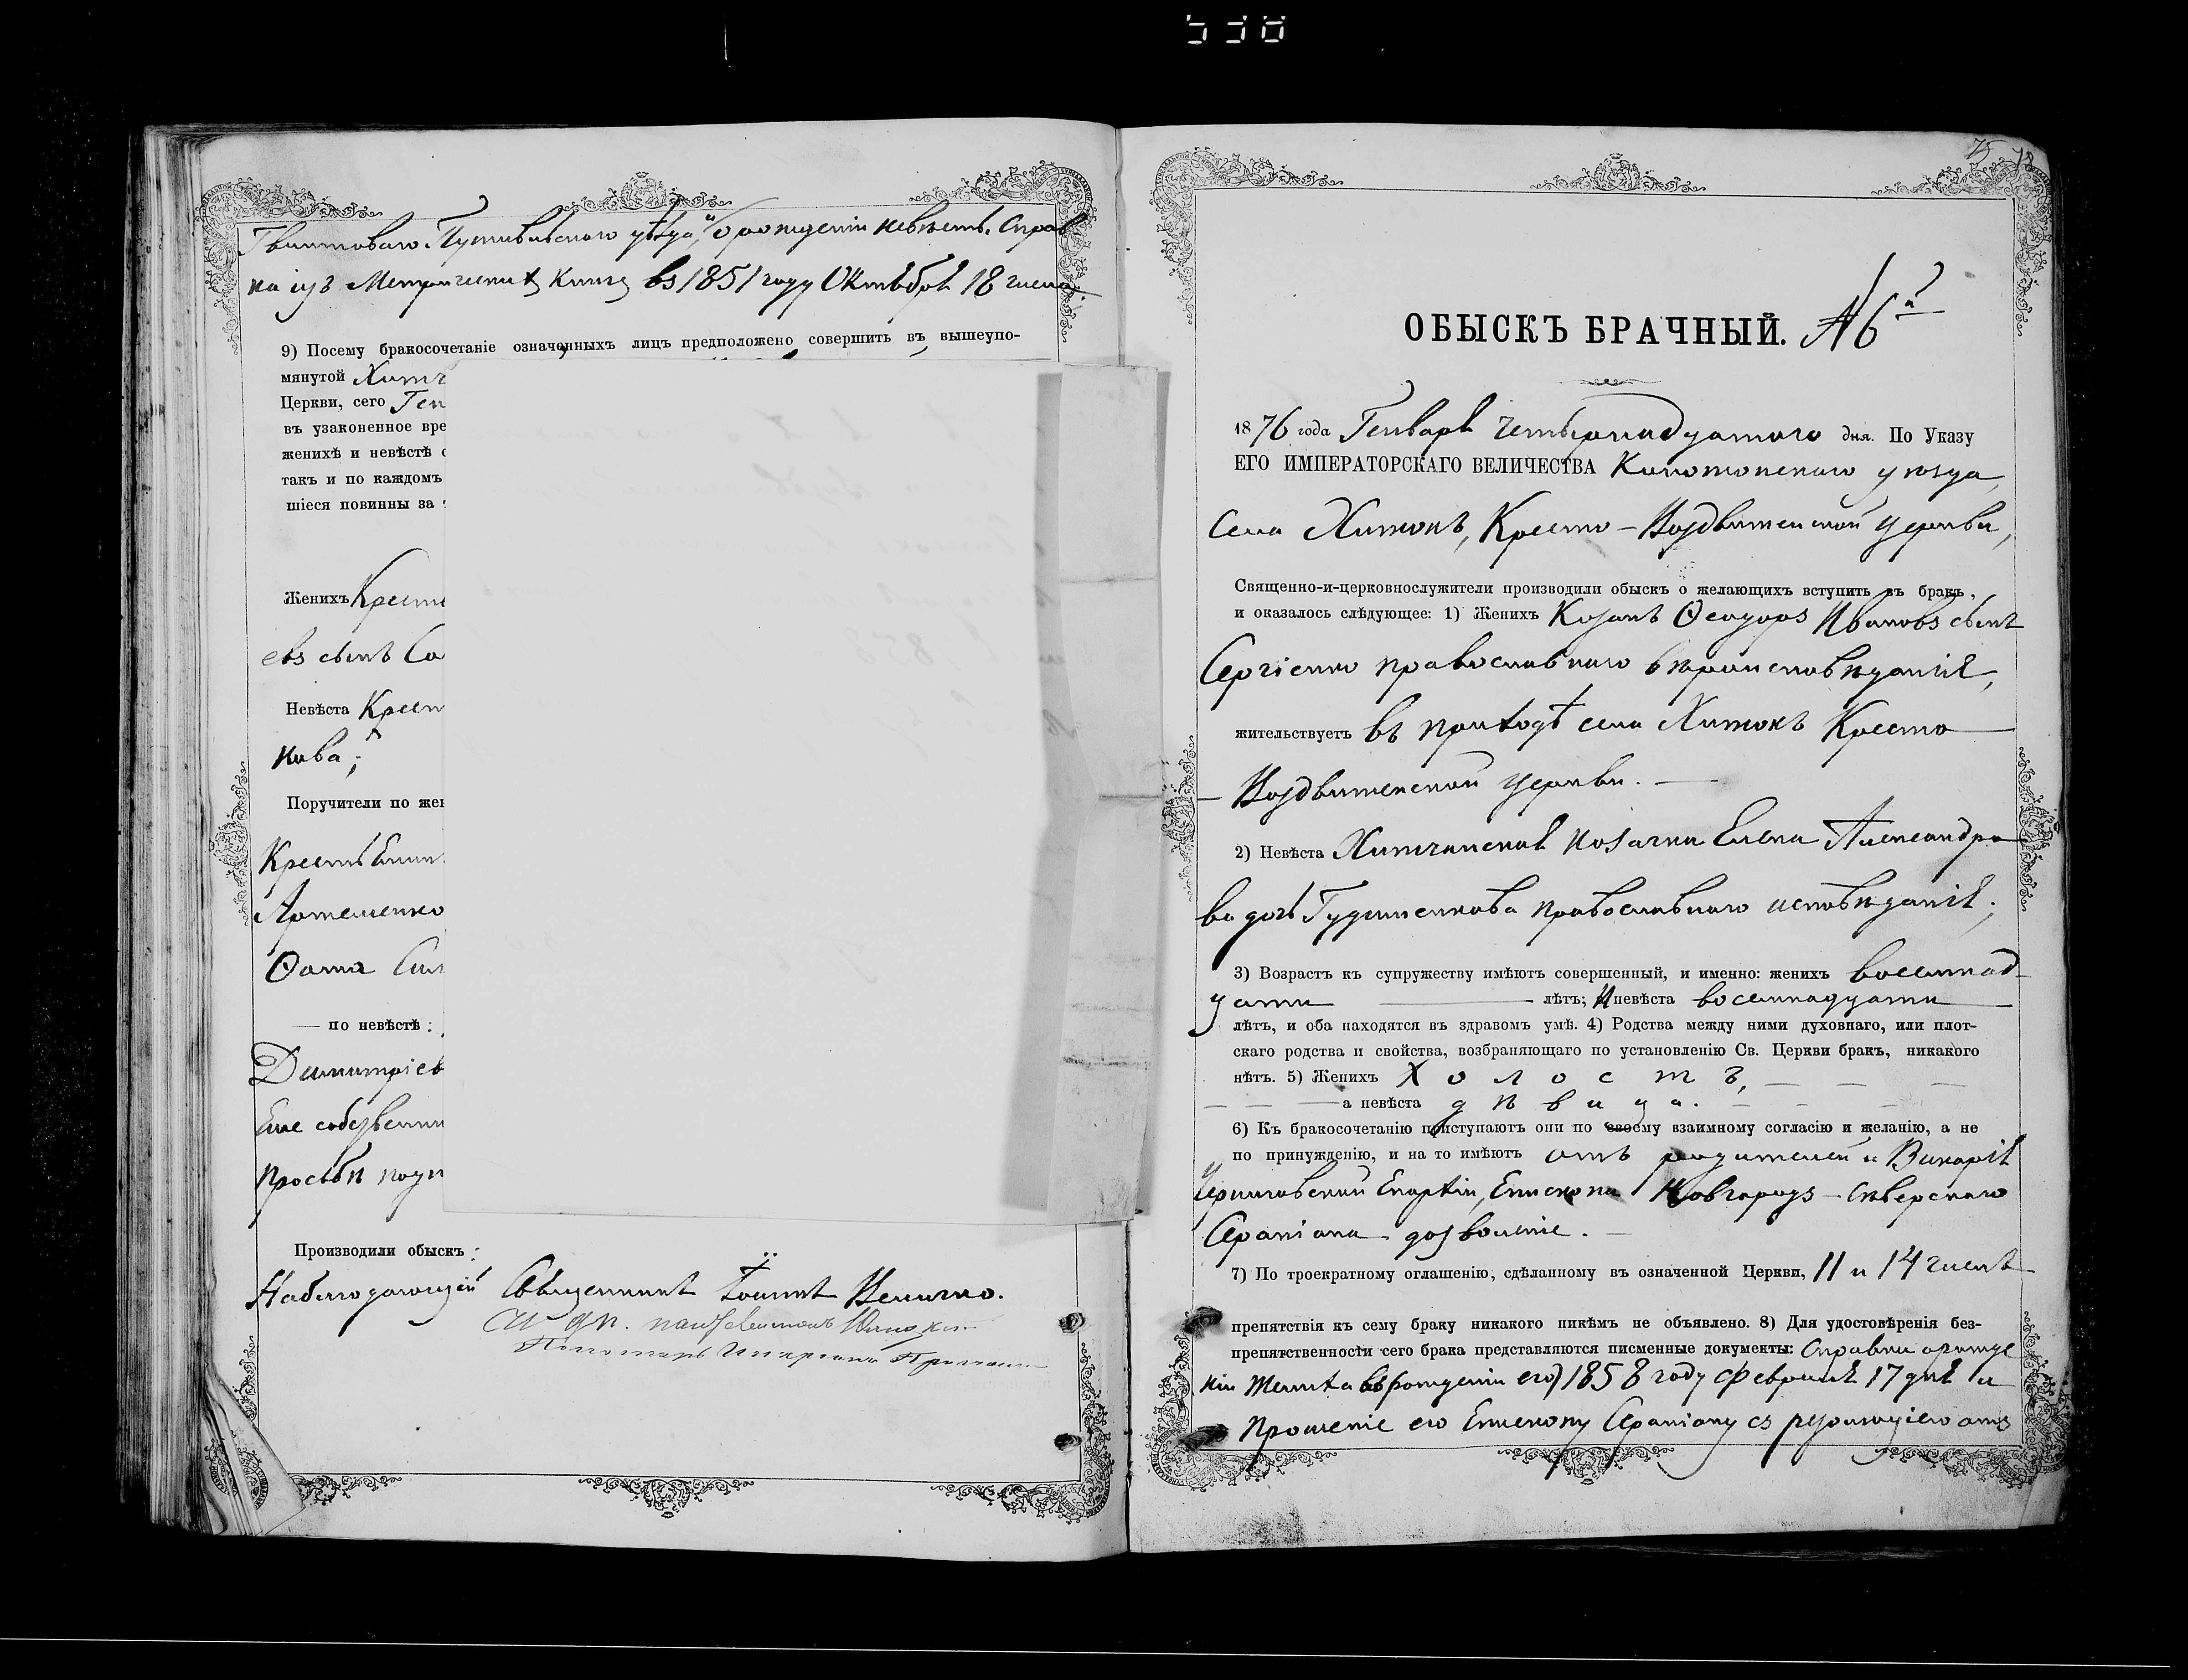 уѣзда, о рожденіи невѣсты. Справ
ка изъ Метрическихъ книгъ въ 1851 году Октября 18 числа.
9) Посему бракосочетаніе означенныхъ лицъ предположено совершить въ вышеупо-
мянутой
Церкви, сего Ген
въ узаконенное вре
женихѣ и невѣстѣ
такъ и по каждомъ
шіеся повинны за
Женихъ Крести
евъ сынъ Са
Невѣста Крест
кова;
Поручители по же
Артеменко
Ѳома
по невѣстѣ:
Димитріев
просьбѣ
Производили обыскъ:
Наблюдающій Священникъ Іоаннъ Величко.
75
ОБЫСКЪ БРАЧНЫЙ. № 6й
1876 года Генваря четырнадцатого дня. По Указу
ЕГО ИМПЕРАТОРСКАГО ВЕЛИЧЕСТВА Конотопского уѣзда,
Села Хижокъ, Кресто-Воздвиженской церкви,
Священно-и-церковнослужители производили обыскъ о желающихъ вступить въ бракъ,
и оказалось слѣдующее: 1) Женихъ Козакъ Ѳеодоръ Ивановъ сынъ
Сергіенко православного вѣроисповѣданія,
жительствуетъ въ приходѣ села Хижокъ Кресто
Воздвиженской церкви.
2) Невѣста Хижчинская козачка Елена Александро
ва дочь Гудименкова православного исповѣданія;
3) Возрастъ къ супружеству имѣютъ совершенный, и именно: женихъ восемнад
цати лѣтъ; и невѣста восемнадцати
лѣтъ, и оба находятся въ здравомъ умѣ. 4) Родства между ними духовнаго, или плот-
скаго родства и свойства, возбраняющаго по установленію Св. Церкви бракъ, никакого
нѣтъ. 5) Женихъ холостъ,
а невѣста дѣвица.
6) Къ бракосочетанію приступаютъ они по своему взаимному согласію и желанію, а не
по принужденію, и на то имѣютъ отъ родителей и Викарія
Черниговской Епархіи, Епископа Новгородъ-Сѣверского
Серапіона дозволеніе.
7) По троекратному оглашенію, сдѣланному въ означенной Церкви, 11 и 14 числъ
препятствія къ сему браку никакого никѣмъ не объявлено. 8) Для удостовѣренія без-
препятственности сего брака представляются писменные документы: Справка о рожде
ніи жениха (о рожденіи его) 1858 году Февраля 17 дня и
Прошеніе его Епископу Серапіону съ резолюціею отъ